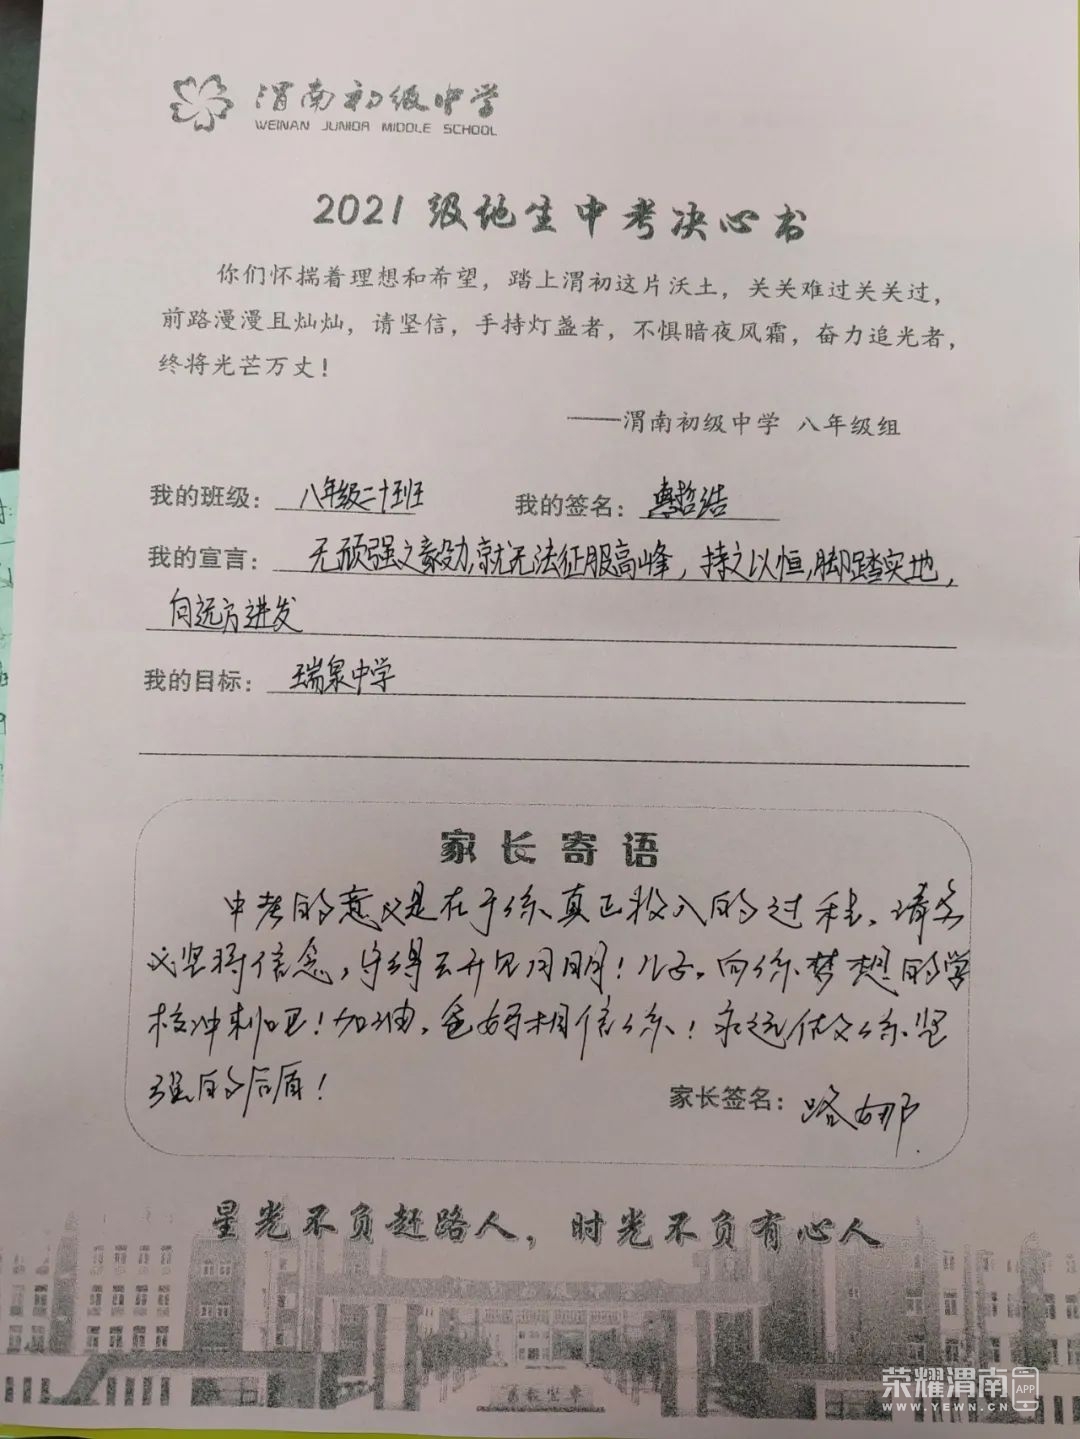 渭南初级中学
WEINAN JUNIOR MIDDLE SCHOOL
2021级地生中考决心书
你们怀揣着理想和希望，踏上渭初这片沃土，关关难过关关过，
前路漫漫且灿灿，请坚信，手持灯盏者，不惧暗夜风霜，奋力追光者，
终将光芒万丈！
——渭南初级中学 八年级组
我的班级：八年级二十五班 我的签名：哲浩
我的宣言：无顽强之毅力,就无法征服高峰，持之以恒,脚踏实地，
向远方进发
我的目标：瑞泉中学
家长寄语
中考的意义是在于你真正投入的过程。请务
必坚持信念，守得云开见月明！儿子，向你梦想的学
校冲刺吧！加油，爸妈相信你！永远做你坚
强的后盾！
家长签名：路娜
星光不负赶路人，时光不负有心人
荣耀渭南 APP
WWW.YEWN.CN